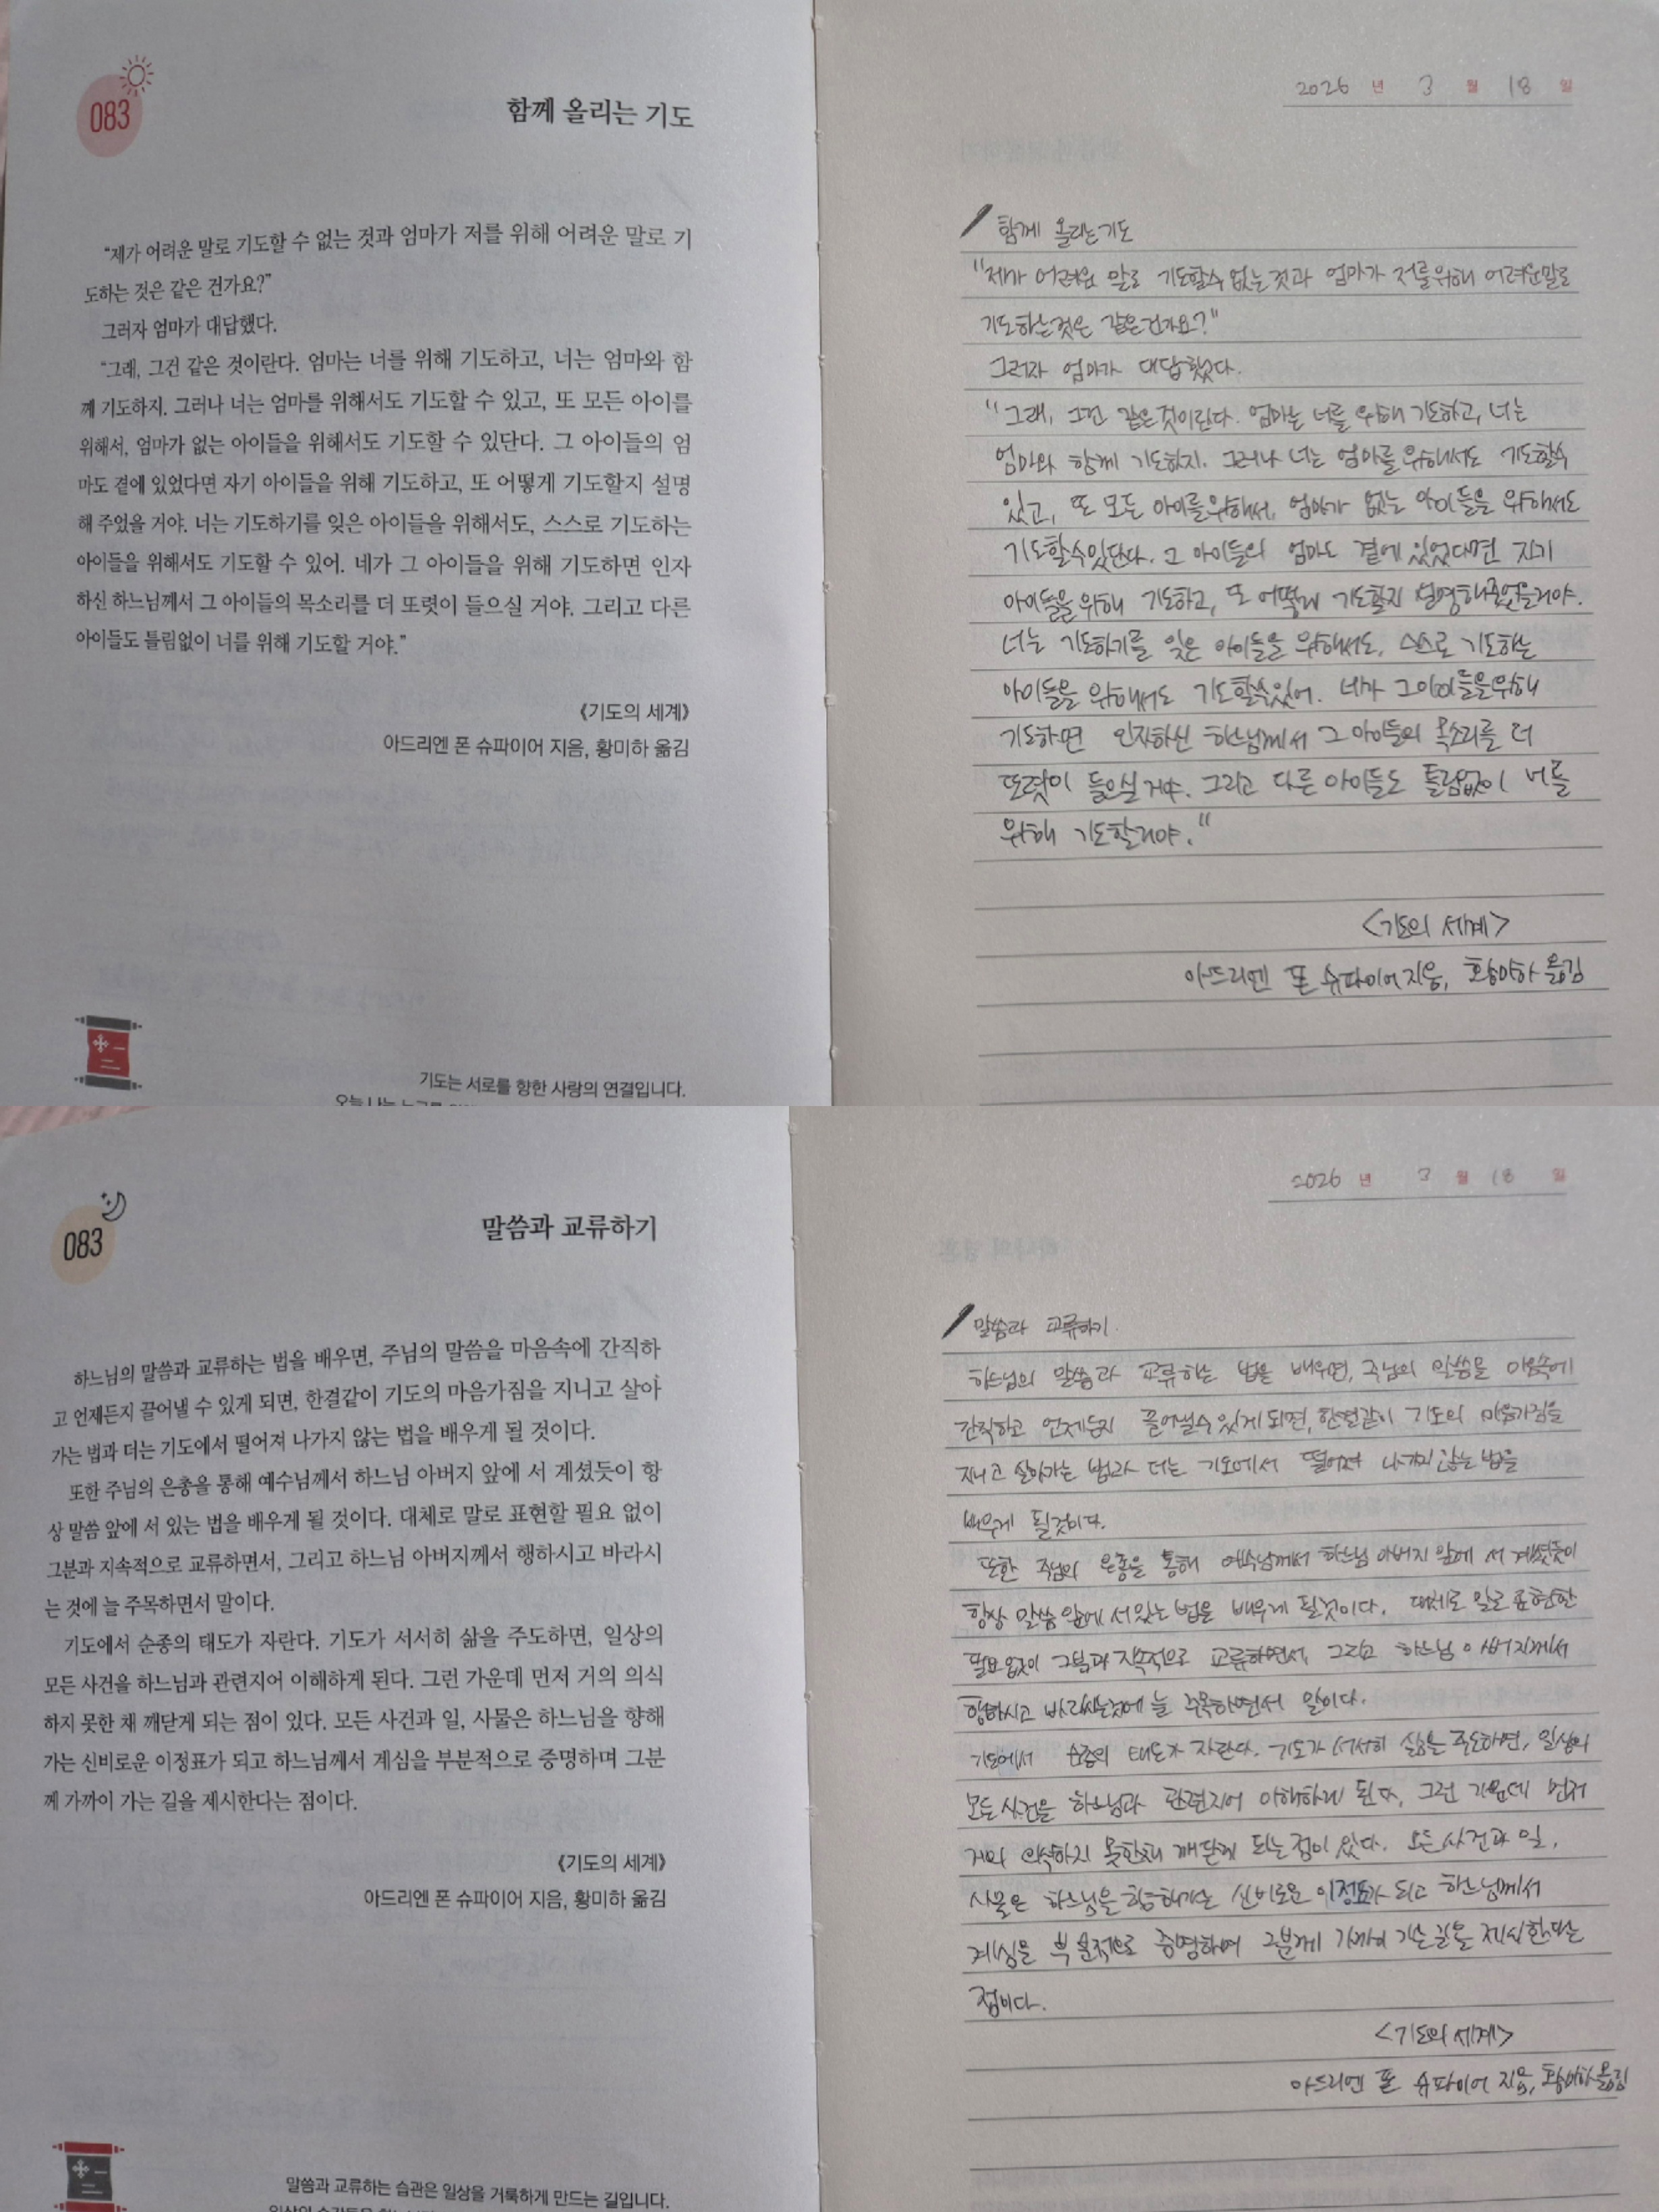 083
함께 올리는 기도
“제가 어려운 말로 기도할 수 없는 것과 엄마가 저를 위해 어려운 말로 기
도하는 것은 같은 건가요?”
그러자 엄마가 대답했다.
“그래, 그건 같은 것이란다. 엄마는 너를 위해 기도하고, 너는 엄마와 함
께 기도하지. 그러나 너는 엄마를 위해서도 기도할 수 있고, 또 모든 아이를
위해서, 엄마가 없는 아이들을 위해서도 기도할 수 있단다. 그 아이들의 엄
마도 곁에 있었다면 자기 아이들을 위해 기도하고, 또 어떻게 기도할지 설명
해 주었을 거야. 너는 기도하기를 잊은 아이들을 위해서도, 스스로 기도하는
아이들을 위해서도 기도할 수 있어. 네가 그 아이들을 위해 기도하면 인자
하신 하느님께서 그 아이들의 목소리를 더 또렷이 들으실 거야. 그리고 다른
아이들도 틀림없이 너를 위해 기도할 거야.”
《기도의 세계》
아드리엔 폰 슈파이어 지음, 황미하 옮김
기도는 서로를 향한 사랑의 연결입니다.
오늘 나는
2026 년 3 월 18 일
함께 올리는 기도
"제가 어려운 말로 기도할수 없는 것과 엄마가 저를위해 어려운말로
기도하는것은 같은건가요?"
그러자 엄마가 대답했다.
"그래, 그건 같은것이란다. 엄마는 너를 위해 기도하고, 너는
엄마와 함께 기도하지. 그러나 너는 엄마를위해서도 기도할수
있고, 또 모든 아이를위해서, 엄마가 없는 아이들을 위해서도
기도할수있단다. 그 아이들의 엄마도 곁에 있었다면 자기
아이들을위해 기도하고, 또 어떻게 기도할지 설명해주었을거야.
너는 기도하기를 잊은 아이들을 위해서도, 스스로 기도하는
아이들을 위해서도 기도할수있어. 네가 그아이들을위해
기도하면 인자하신 하느님께서 그 아이들의 목소리를 더
또렷이 들으실 거야. 그리고 다른 아이들도 틀림없이 너를
위해 기도할거야."
<기도의 세계>
아드리엔 폰 슈파이어지음, 황미하 옮김
083
말씀과 교류하기
하느님의 말씀과 교류하는 법을 배우면, 주님의 말씀을 마음속에 간직하
고 언제든지 끌어낼 수 있게 되면, 한결같이 기도의 마음가짐을 지니고 살아
가는 법과 더는 기도에서 떨어져 나가지 않는 법을 배우게 될 것이다.
또한 주님의 은총을 통해 예수님께서 하느님 아버지 앞에 서 계셨듯이 항
상 말씀 앞에 서 있는 법을 배우게 될 것이다. 대체로 말로 표현할 필요 없이
그분과 지속적으로 교류하면서, 그리고 하느님 아버지께서 행하시고 바라시
는 것에 늘 주목하면서 말이다.
기도에서 순종의 태도가 자란다. 기도가 서서히 삶을 주도하면, 일상의
모든 사건을 하느님과 관련지어 이해하게 된다. 그런 가운데 먼저 거의 의식
하지 못한 채 깨닫게 되는 점이 있다. 모든 사건과 일, 사물은 하느님을 향해
가는 신비로운 이정표가 되고 하느님께서 계심을 부분적으로 증명하며 그분
께 가까이 가는 길을 제시한다는 점이다.
《기도의 세계》
아드리엔 폰 슈파이어 지음, 황미하 옮김
말씀과 교류하는 습관은 일상을 거룩하게 만드는 길입니다.
2026 년 3 월 18 일
말씀과 교류하기
하느님의 말씀과 교류하는 법을 배우면, 주님의 말씀을 마음속에
간직하고 언제든지 끌어낼수있게 되면, 한결같이 기도의 마음가짐을
지니고 살아가는 법과 더는 기도에서 떨어져 나가지 않는 법을
배우게 될것이다.
또한 주님의 은총을 통해 예수님께서 하느님 아버지 앞에 서 계셨듯이
항상 말씀 앞에 서있는 법을 배우게 될것이다. 대체로 말로 표현할
필요없이 그분과 지속적으로 교류하면서, 그리고 하느님 아버지께서
행하시고 바라시는것에 늘 주목하면서 말이다.
기도에서 순종의 태도가 자란다. 기도가 서서히 삶을 주도하면, 일상의
모든 사건을 하느님과 관련지어 이해하게 된다. 그런 가운데 먼저
거의 의식하지 못한채 깨닫게 되는 점이 있다. 모든 사건과 일,
사물은 하느님을 향해가는 신비로운 이정표가 되고 하느님께서
계심을 부분적으로 증명하며 그분께 가까이 가는 길을 제시한다는
점이다.
<기도의 세계>
아드리엔 폰 슈파이어 지음, 황미하옮김